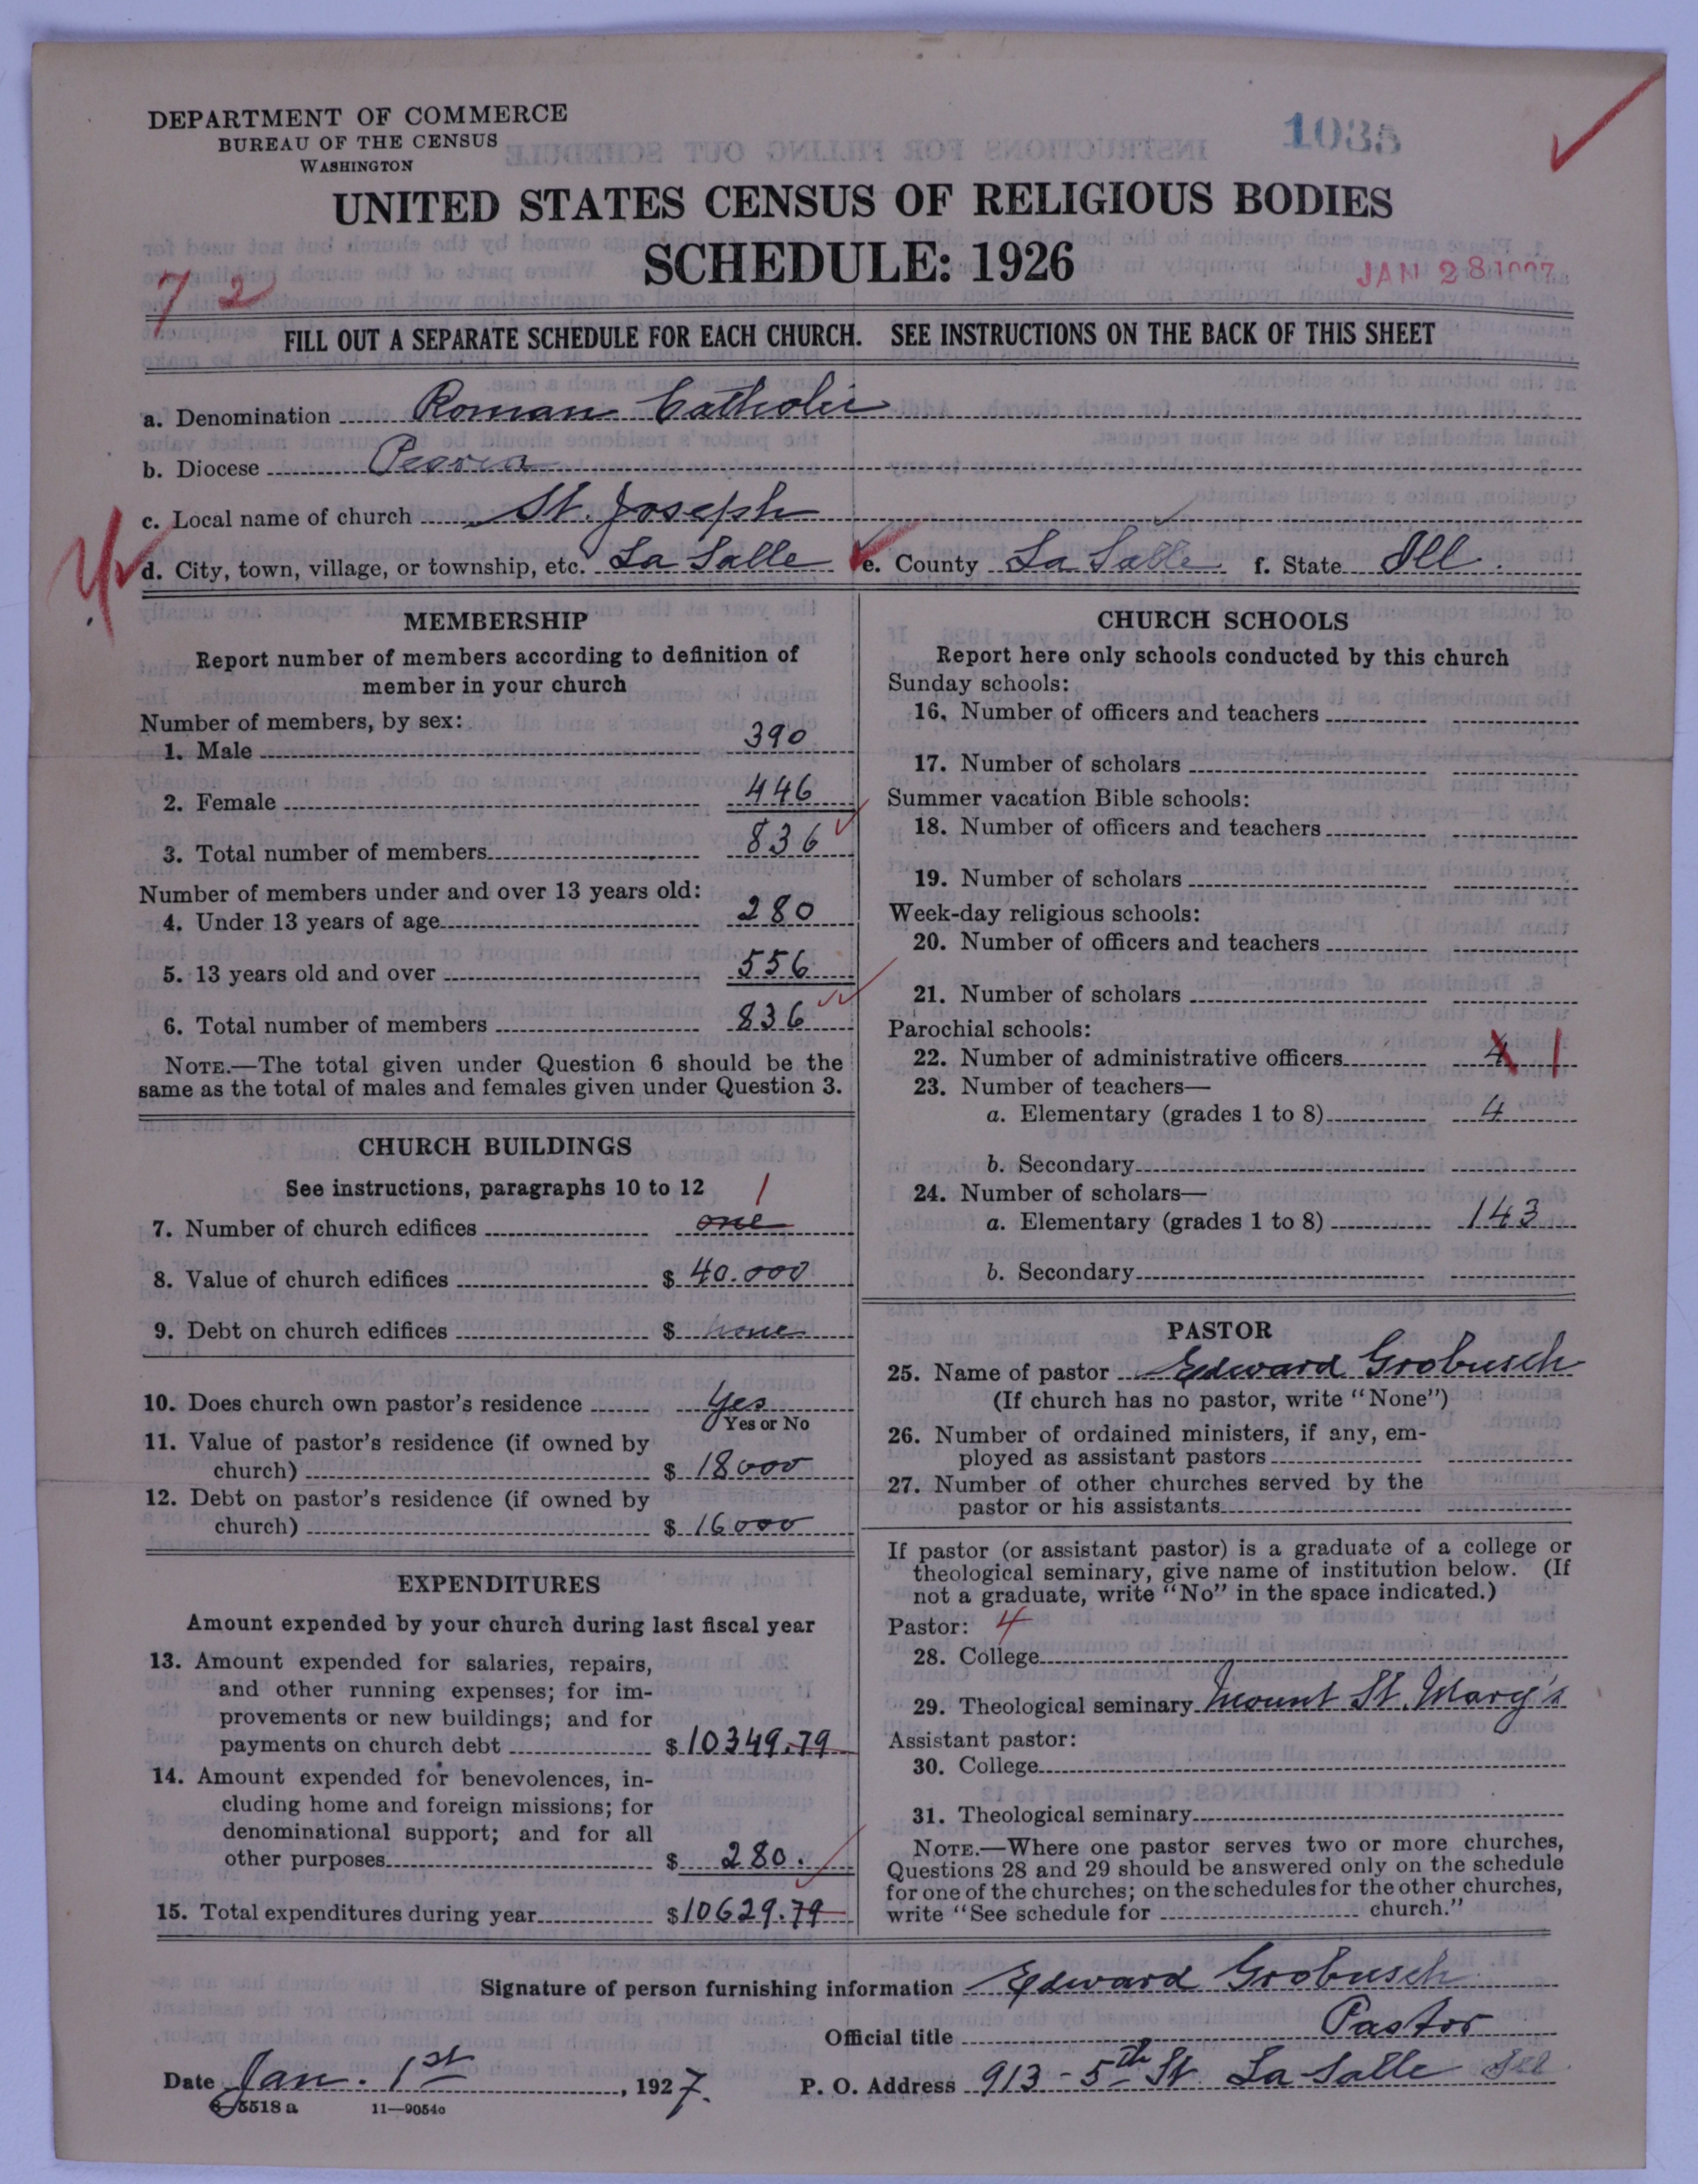 DEPARTMENT OF COMMERCE
BUREAU OF THE CENSUS
WASHINGTON
1035
UNITED STATES CENSUS OF RELIGIOUS BODIES
SCHEDULE: 1926
JAN 28 1927
7 2
FILL OUT A SEPARATE SCHEDULE FOR EACH CHURCH. SEE INSTRUCTIONS ON THE BACK OF THIS SHEET
a. Denomination Roman Catholic
b. Diocese Peoria
c. Local name of church St. Joseph
d. City, town, village, or township, etc. La Salle e. County La Salle f. State Ill.
MEMBERSHIP
Report number of members according to definition of
member in your church
Number of members, by sex:
1. Male 390
2. Female 446
3. Total number of members 836
Number of members under and over 13 years old:
4. Under 13 years of age 280
5. 13 years old and over 556
6. Total number of members 836
NOTE.—The total given under Question 6 should be the
same as the total of males and females given under Question 3.
CHURCH BUILDINGS
See instructions, paragraphs 10 to 12 1
7. Number of church edifices one
8. Value of church edifices $ 40.000
9. Debt on church edifices $ none
10. Does church own pastor's residence Yes
Yes or No
11. Value of pastor's residence (if owned by
church) $ 18000
12. Debt on pastor's residence (if owned by
church) $ 16000
EXPENDITURES
Amount expended by your church during last fiscal year
13. Amount expended for salaries, repairs,
and other running expenses; for im-
provements or new buildings; and for
payments on church debt $ 10349.79
14. Amount expended for benevolences, in-
cluding home and foreign missions; for
denominational support; and for all
other purposes $ 280.
15. Total expenditures during year $ 10629.79
CHURCH SCHOOLS
Report here only schools conducted by this church
Sunday schools:
16. Number of officers and teachers
17. Number of scholars
Summer vacation Bible schools:
18. Number of officers and teachers
19. Number of scholars
Week-day religious schools:
20. Number of officers and teachers
21. Number of scholars
Parochial schools:
22. Number of administrative officers 4 1
23. Number of teachers—
a. Elementary (grades 1 to 8) 4
b. Secondary
24. Number of scholars—
a. Elementary (grades 1 to 8) 143
b. Secondary
PASTOR
25. Name of pastor Edward Grobusch
(If church has no pastor, write "None")
26. Number of ordained ministers, if any, em-
ployed as assistant pastors
27. Number of other churches served by the
pastor or his assistants
If pastor (or assistant pastor) is a graduate of a college or
theological seminary, give name of institution below. (If
not a graduate, write "No" in the space indicated.)
Pastor: 4
28. College
29. Theological seminary Mount St. Mary's
Assistant pastor:
30. College
31. Theological seminary
NOTE.—Where one pastor serves two or more churches,
Questions 28 and 29 should be answered only on the schedule
for one of the churches; on the schedules for the other churches,
write "See schedule for church."
Signature of person furnishing information Edward Grobusch
Official title Pastor
Date Jan. 1st, 1927. P. O. Address 913 - 5th St. La Salle Ill
8-5518a 11—9054c